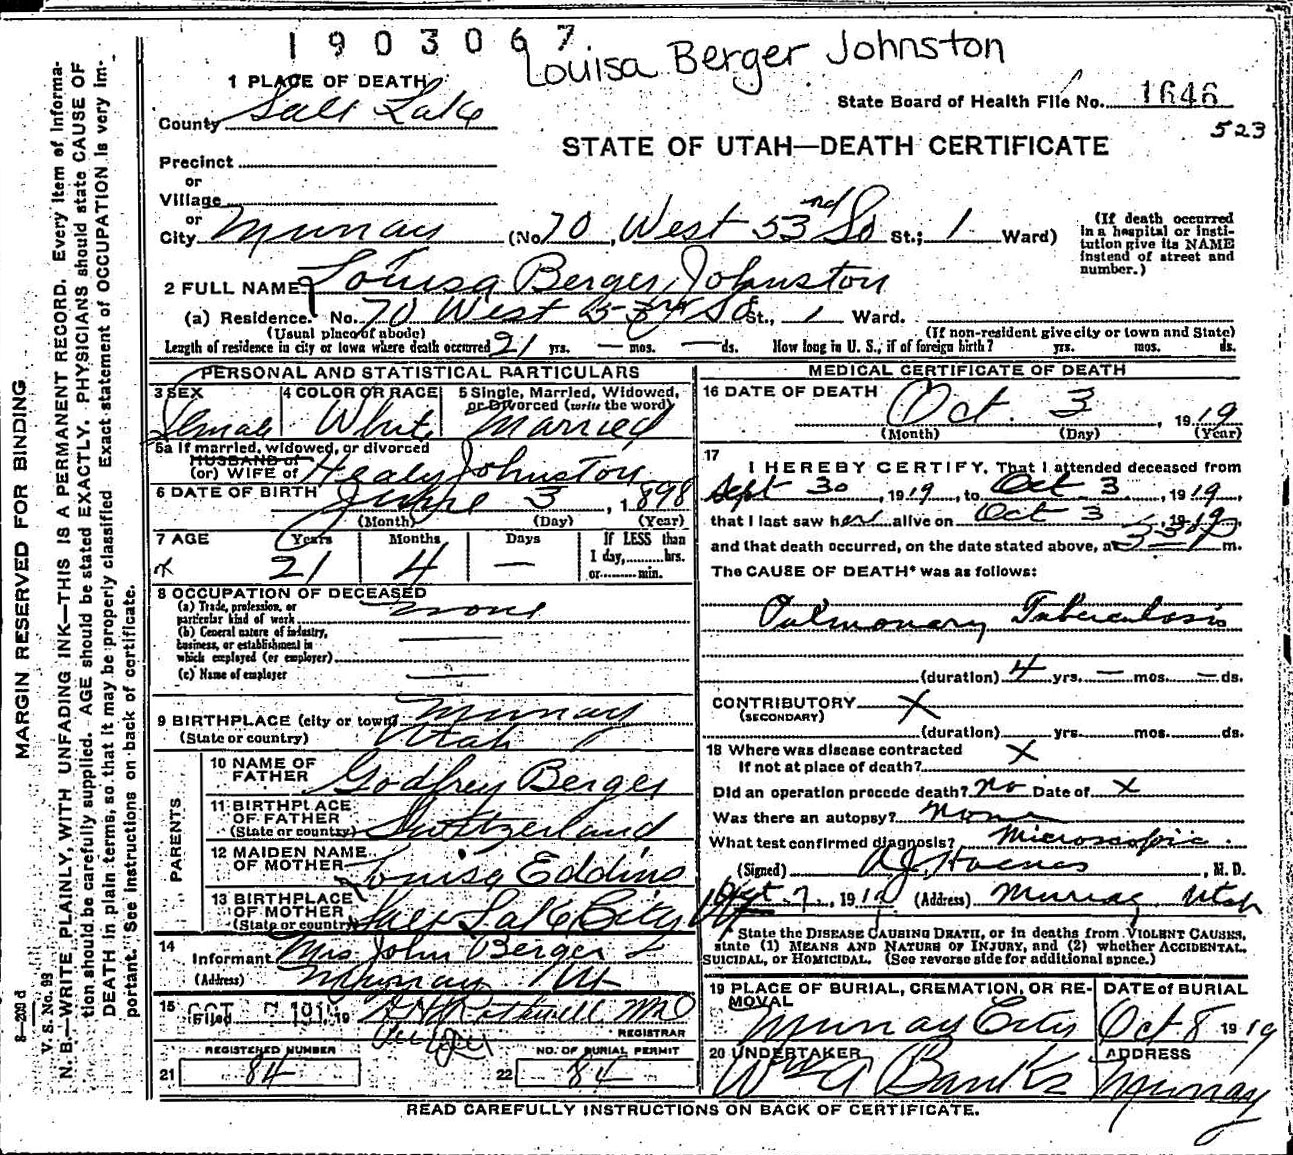 1903067
Louisa Berger Johnston
1 PLACE OF DEATH
County Salt Lake
State Board of Health File No. 1646
523
STATE OF UTAH—DEATH CERTIFICATE
Precinct
or
Village
or
City Murray (No. 70, West 53nd So St.; 1 Ward)
(If death occurred in a hospital or institution give its NAME instead of street and number.)
2 FULL NAME Louisa Berger Johnston
(a) Residence. No. 70 West 53rd So St., 1 Ward.
(Usual place of abode) (If non-resident give city or town and State)
Length of residence in city or town where death occurred 21 yrs. — mos. — ds. How long in U. S., if of foreign birth? yrs. mos. ds.
PERSONAL AND STATISTICAL PARTICULARS
3 SEX 4 COLOR OR RACE 5 Single, Married, Widowed, or Divorced (write the word)
Female White Married
5a If married, widowed, or divorced
HUSBAND of
(or) WIFE of Healy Johnston
6 DATE OF BIRTH June 3, 1898
(Month) (Day) (Year)
7 AGE Years Months Days If LESS than
1 day, hrs.
or min.
21 4 —
8 OCCUPATION OF DECEASED
(a) Trade, profession, or
particular kind of work none
(b) General nature of industry,
business, or establishment in
which employed (or employer)
(c) Name of employer
9 BIRTHPLACE (city or town) Murray
(State or country) Utah
PARENTS
10 NAME OF FATHER Godfrey Berger
11 BIRTHPLACE OF FATHER
(State or country) Switzerland
12 MAIDEN NAME OF MOTHER Louisa Eddins
13 BIRTHPLACE OF MOTHER
(State or country) Salt Lake City Ut
14
Informant Mrs John Berger
(Address) Murray Ut
15 OCT 7 1919
Filed 19 Rothwell MD
REGISTRAR
REGISTERED NUMBER NO. OF BURIAL PERMIT
21 84 22 84
MEDICAL CERTIFICATE OF DEATH
16 DATE OF DEATH Oct. 3, 1919
(Month) (Day) (Year)
17
I HEREBY CERTIFY, That I attended deceased from
Sept 30, 1919, to Oct 3, 1919,
that I last saw her alive on Oct 3, 1919
and that death occurred, on the date stated above, at m.
The CAUSE OF DEATH* was as follows:
Pulmonary Tuberculosis
(duration) 4 yrs. — mos. — ds.
CONTRIBUTORY X
(SECONDARY)
(duration) yrs. mos. ds.
18 Where was disease contracted
If not at place of death? X
Did an operation precede death? No Date of X
Was there an autopsy? None
What test confirmed diagnosis? Microscopic.
(Signed) , M. D.
Oct 7, 1919 (Address) Murray, Utah
*State the DISEASE CAUSING DEATH, or in deaths from VIOLENT CAUSES,
state (1) MEANS AND NATURE OF INJURY, and (2) whether ACCIDENTAL,
SUICIDAL, or HOMICIDAL. (See reverse side for additional space.)
19 PLACE OF BURIAL, CREMATION, OR REMOVAL DATE of BURIAL
Murray City Oct 8 1919
20 UNDERTAKER ADDRESS
Wm A Banks Murray
READ CAREFULLY INSTRUCTIONS ON BACK OF CERTIFICATE.
MARGIN RESERVED FOR BINDING
8—200 d
V. S. No. 99
N. B.—WRITE PLAINLY, WITH UNFADING INK—THIS IS A PERMANENT RECORD. Every item of information should be carefully supplied. AGE should be stated EXACTLY. PHYSICIANS should state CAUSE OF
DEATH in plain terms, so that it may be properly classified. Exact statement of OCCUPATION is very important. See instructions on back of certificate.